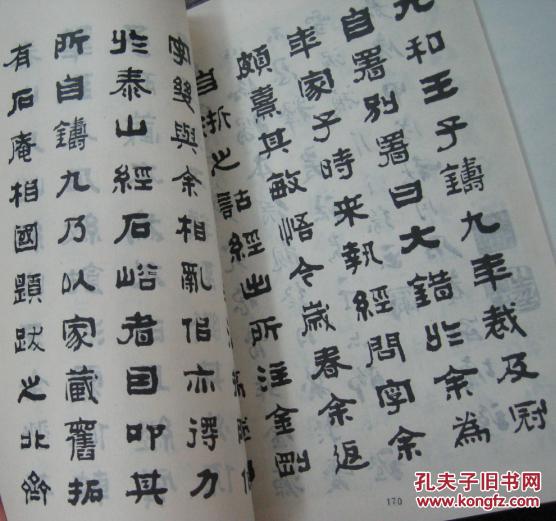 元和王子鑄九年裁及冠
自署别署曰大錯於余為
年家子時来執經問字余
頗熹其敏悟今歲春余返
自浙之詁經出所注金剛
字與余相亂佀亦得力
於泰山經石峪者因叩其
所自鑄九乃以家藏舊拓
有石庵相國題跋之北齊
170
孔夫子旧书网
www.kongfz.com